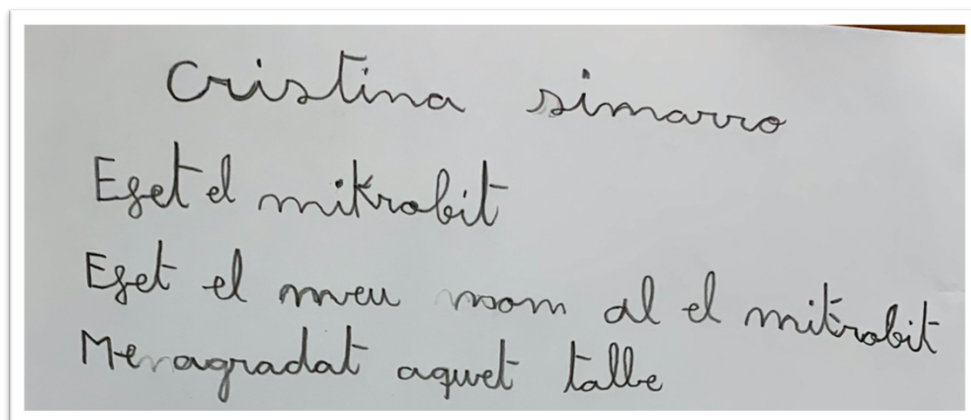 Cristina simarro
Efet el mikrobit
Efet el meu nom al el mitrobit
Me agradat aquet talle